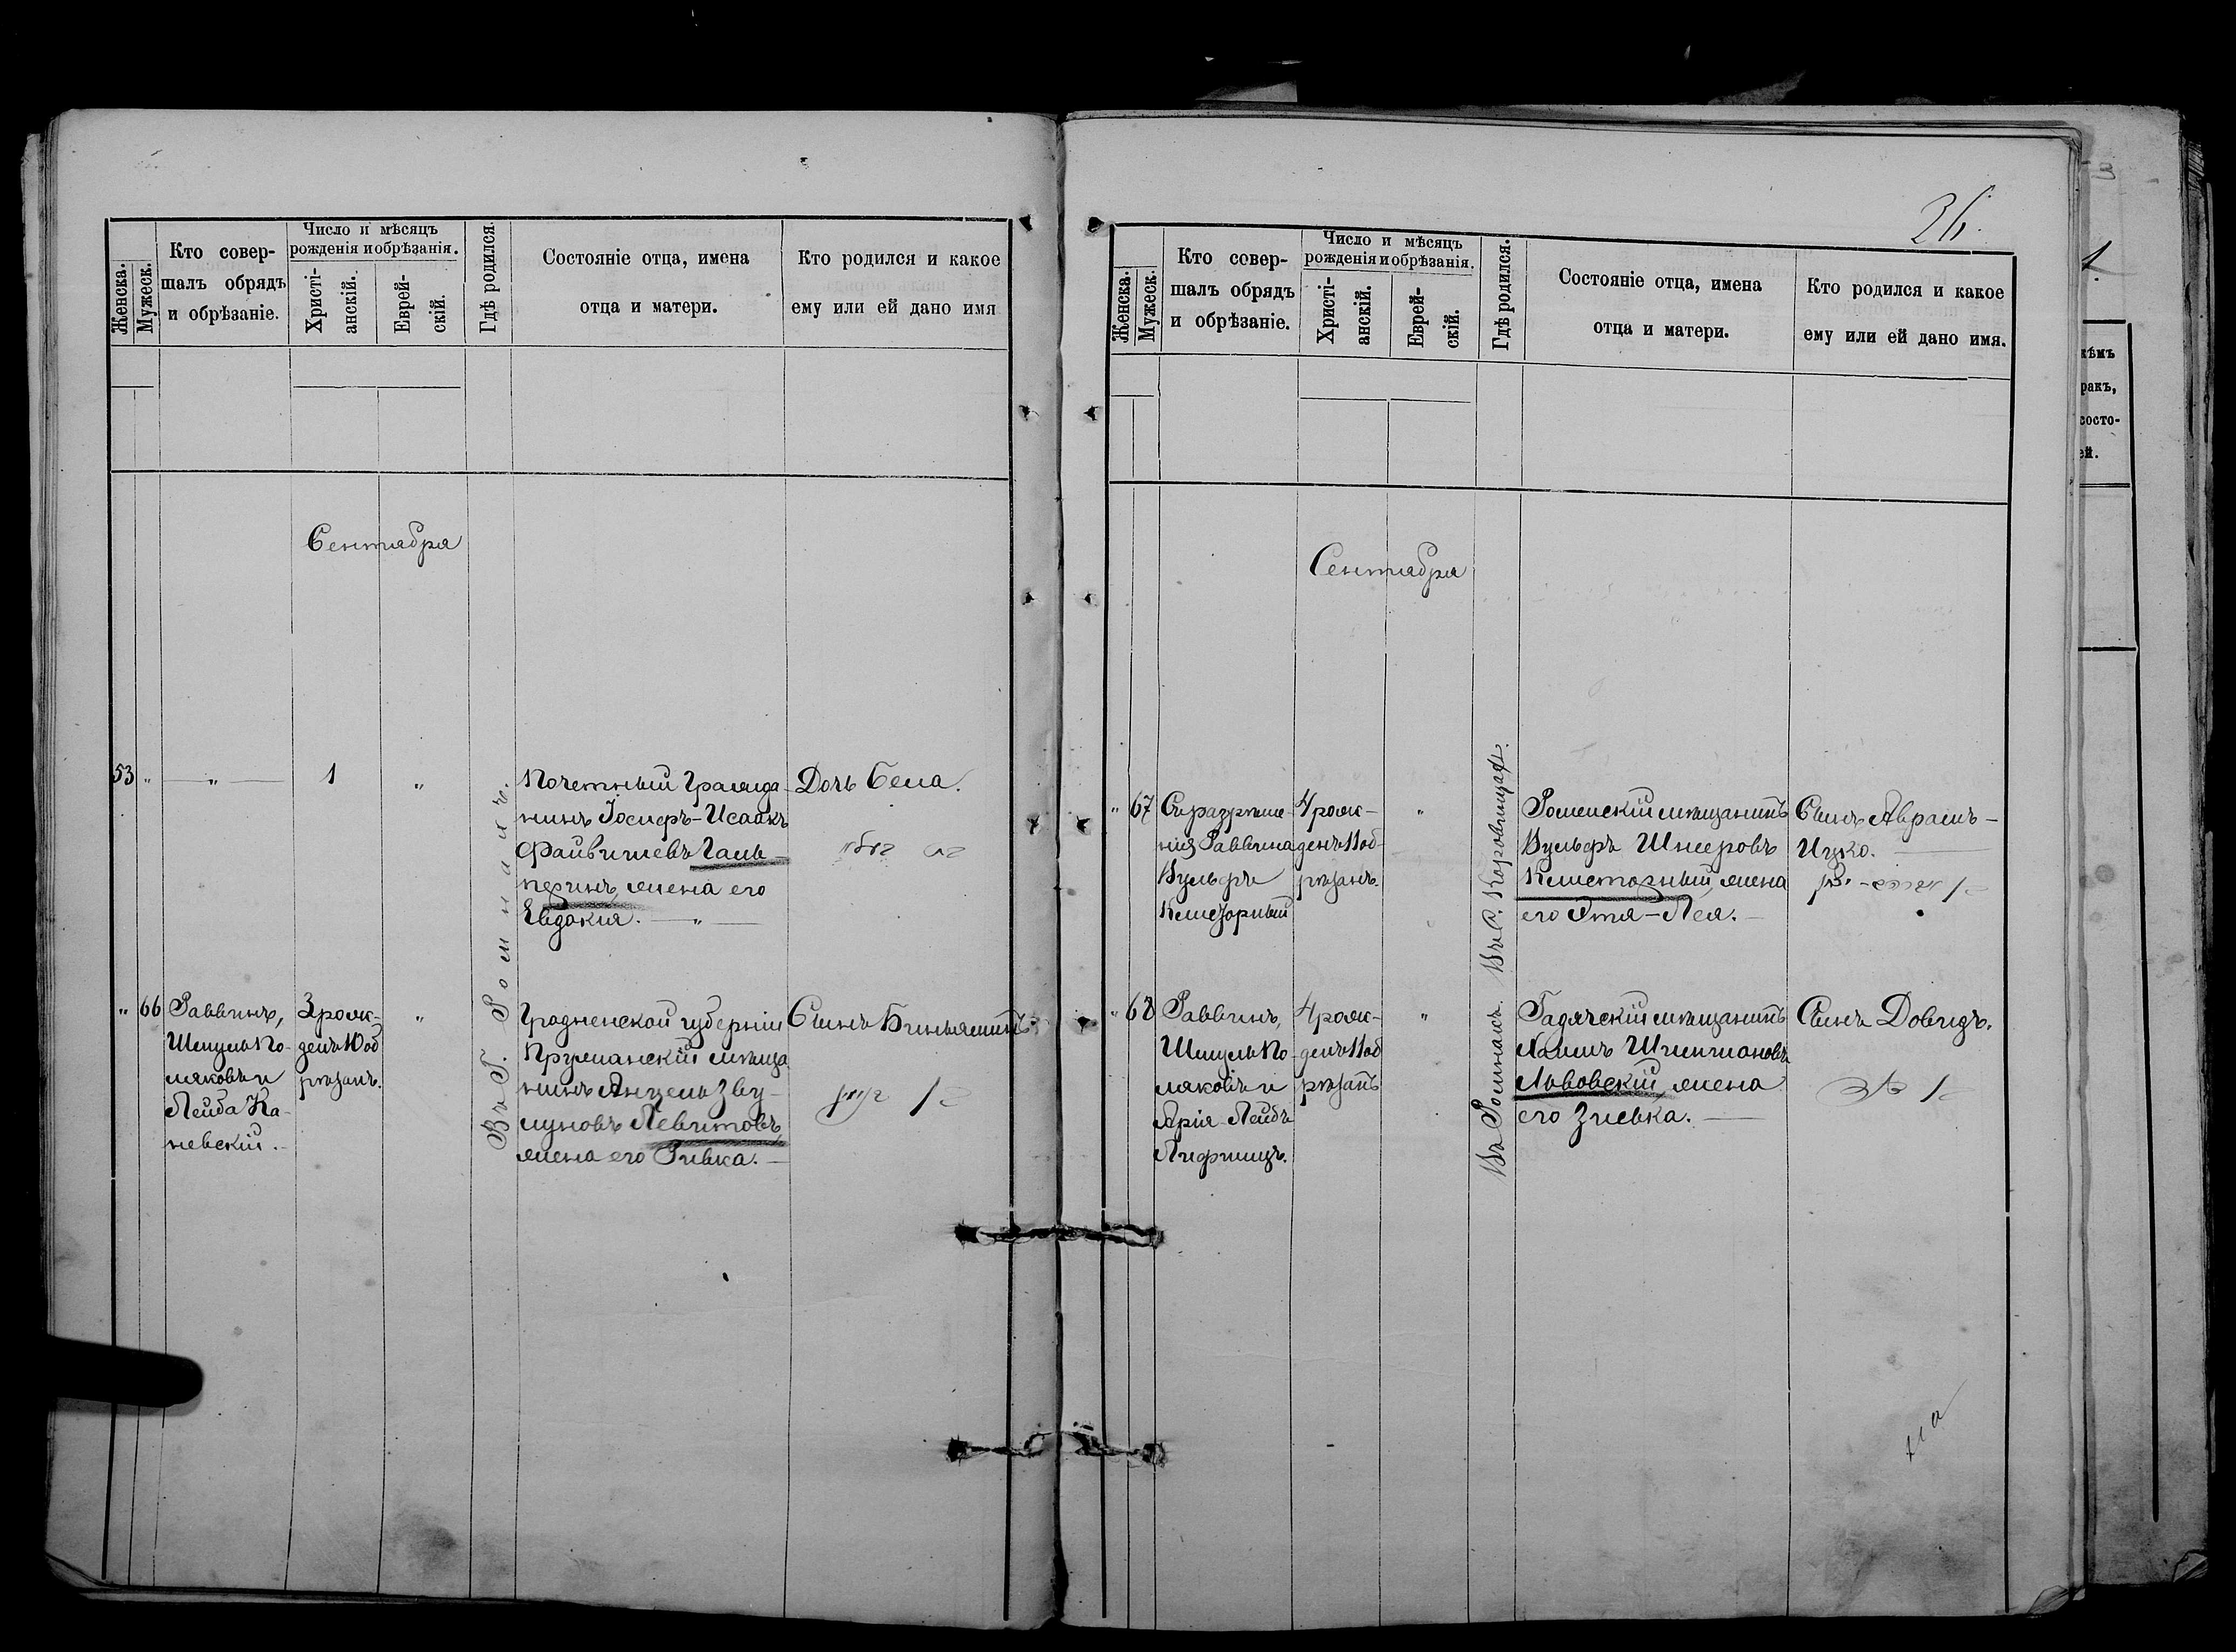 Женска.
Мужеск.
Кто совер-
шалъ обрядъ
и обрѣзаніе.
Число и мѣсяцъ
рожденія и обрѣзанія.
Христі-
анскій.
Еврей-
скій.
Гдѣ родился.
Состояніе отца, имена
отца и матери.
Кто родился и какое
ему или ей дано имя
Сентября
53 " — " — 1 "
Въ Г. Ромнахъ.
Почетный Гражда-
нинъ Іосифъ-Исаакъ
Файвишевъ Галь-
перинъ, жена его
Евдокия. — " —
Дочь Бела.
" 66
Раввинъ,
Шмуль По-
ляковъ и
Лейба Ка-
невскій.
3 рож-
денъ 10 об
рѣзанъ.
"
Гродненской губерніи
Пружанскій мѣща
нинъ Анцель Зву-
луновъ Левитовъ,
жена его Ривка. —
Сынъ Биньяминъ.
26.
Женска.
Мужеск.
Кто совер-
шалъ обрядъ
и обрѣзаніе.
Число и мѣсяцъ
рожденія и обрѣзанія.
Христі-
анскій.
Еврей-
скій.
Гдѣ родился.
Состояніе отца, имена
отца и матери.
Кто родился и какое
ему или ей дано имя.
Сентября
" 67
Съ разрѣше-
нія Раввина
Вульфъ
4 рож-
денъ 11 об-
рѣзанъ.
"
Роменскій мѣщанинъ
Вульфъ Шнеровъ
жена
его Этя-Лея. —
Сынъ Абрамъ-
Ицко. —
" 68
Раввинъ,
Шмуль По-
ляковъ и
Арія-Лейбъ
Лифшицъ.
4 рож-
денъ 11 об
рѣзанъ
"
Въ Ромнахъ.
Гадячскій мѣщанинъ
Львовскій, жена
его Злевка. —
Сынъ Довидъ.
кѣмъ
ракъ,
состо-
ей.